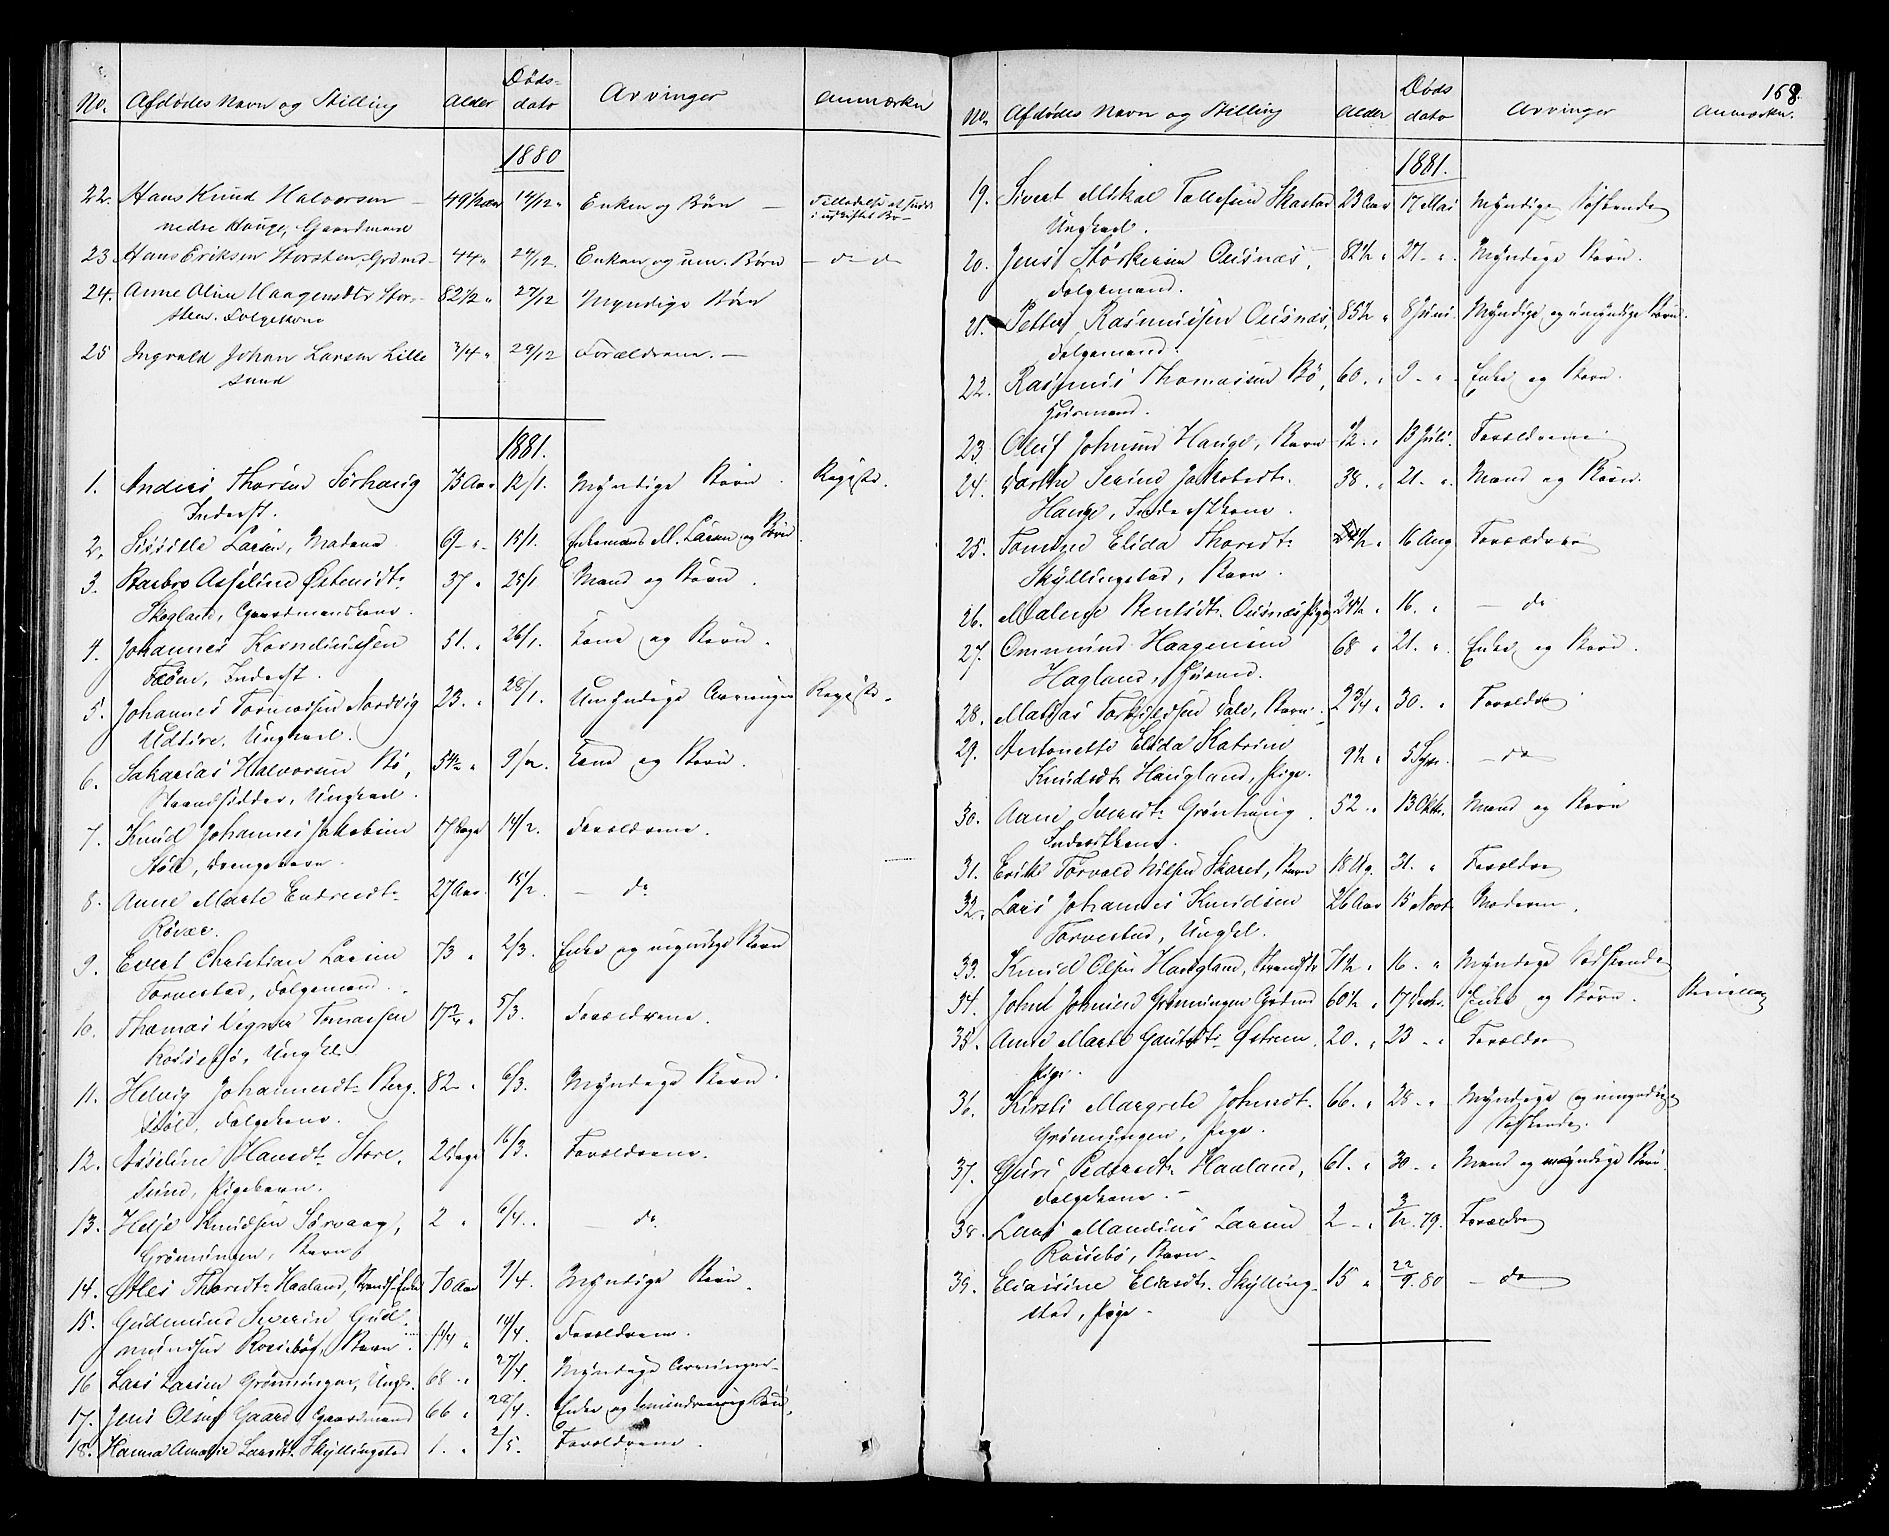 No. Afdødes Navn og Stilling Alder Døds-dato Arvinger Anmærkn
1880
22. Hans Knud Halvorsen 49½ Aar 14/12 Enken og Børn Tilladelse at sidde
nedre Hauge, Gaardmand i uskiftet Bo
23. Hans Eriksen Storsten, Grdmd 44 " 24/12 Enken og um. Børn — d — d
24. Anne Oline Haagensdtr Stor- 82½ " 27/12 Myndige Børn
sten. Folgekone
25 Ingvald Johan Larsen Lille 3/4 " 29/12 Forældrene. —
sund
1881.
1. Anders Thorsen Sørhaug 73 Aar 12/1. Myndige Børn. Registr.
Inderst.
2. Sissille Larsen, Madame 69 - " 15/1. Enkemand M. Larsen og Børn
3. Barbro Asseline Østensdtr 37 " 25/1 Mand og Børn.
Skogland, Gaardmandskone.
4. Johannes Korneliussen 51. " 26/1. Kone og Børn.
Fæøen, Inderst.
5. Johannes Tormodsen Nordvig 23. " 28/1. Umyndige Arvinger Registr.
Udsire. Ungkarl.
6. Sakarias Halvorsen Bø, 54½ " 9/2. Kone og Børn.
Strandsidder, Ungkarl.
7. Knud Johannes Jakobsen 17 Dage 14/2. Forældrene.
Støle, Drengebarn.
8. Anne Marte Endresdtr 27 Aar. 15/2. — do
Røvær.
9. Evert Christian Larsen 73 " 2/3. Enke og myndige Børn
Torvestad, Folgemand.
10. Thomas Signer Tomassen 17¾ " 5/3. Forældrene.
Rossebø, Ungkl.
11. Helvig Johannesdtr Berg. 82 - " 6/3. Myndige Børn.
støl, Folgekone.
12. Asseline Hansdtr Store- 22 Dage 16/3. Forældrene.
sund, Pigebarn.
13. Helje Knudsen Sørvaag, 2 " 6/4. — do
Grønningen, Barn
14. Thordtr Haaland, 70 Aar 9/4. Myndige Børn.
15. Gudmund Severin Gud- 14/4. Forældrene.
mundsen Rossebø, Barn.
16 Lars Larsen Grønningen, Ungk. 68 - " 27/4 Myndige Arvinger
17. Jens Olsen Gaard, Gaardmand 66 " 28/4. Enke og mindreaarig Børn.
18. Hanna Amalie Larsdtr Skyllingstad 1. " 2/5. Forældrene.
168.
No. Afdødes Navn og Stilling Alder Døds dato Arvinger Anmærkn.
1881.
19. Sivert Mikal Tollefsen Skastad 23 Aar 17 Mai Myndige Søskende
Ungkarl.
20. Jens Størkersen Ousnæs, 82½ " 27 - ". Myndige Børn.
Folgemand.
21. Petter Rasmussen Ousnæs, 85½ " 8 Juni. Myndige og umyndige Børn.
Folgemand.
22. Rasmus Thomassen Bø, 60. " 9 - " Enke og Børn.
Husmand.
23. Oluf Johnsen Hauge, Barn ½. " 13 Juli. Forældrene
24. Dorthe Serine Jakobsdtr. 38. " 21. ". Mand og Børn.
Hauge, Inderstkone.
25. Tomine Elida Thoresdtr " 16 Aug Forældrene
Skyllingstad, Barn.
26. Malene Bentsdtr Ousnæs, Pige 24½ " 16. " — do
27. Ommund Haagensen 68 " 21. " Enke og Børn.
Hagland, Husmd.
28. Mathias Torkildsen Dale, Barn. 2¾ " 30. " Forældre
29. Antonette Elida Katrine 9½ " 5 Sept. — do
Knudsdtr Haugland, Pige.
30. Aane Sverdtr Grønhaug. 52 " 13 Oktbr. Mand og Børn
Inderstkone.
31. Erik Torvald Nilsen Skaret, Barn 18 Ug. 31. " Forældre
32. Lars Johannes Knudsen 26 Aar 15 Novbr Moderen.
Torvestad, Ungkl.
33. Knud Olsen Haugland, Strandsdr 71½ " 16. " Myndige Sødskende
34. John Johnsen Grønningen Grdmd 60½ " 17 Decbr. Enke og Børn.
35. Anne Marte Gautesdtr Østrem 20. " 23 - " Forældre
Pige.
36. Kirsti Margrete Johnsdtr. 66. " 28 - ". Myndige og umyndige
Grønningen, Pige. Søskende.
37. Guri Pedersdtr Haaland, 61. " 30 - " Mand og myndige Børn
Folgekone. —
38. Lars Mandius Larsen 2 - " 3/12. 79. Forældre
Rossebø, Barn.
39. Eliassine Eliasdtr. Skylling- 15 " 22/9. 80 — do
stad, Pige.